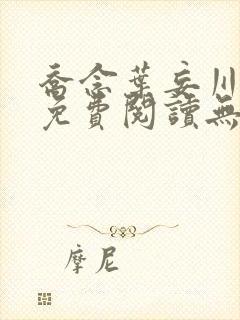 喬念葉妄川
免費閱讀無
摩尼